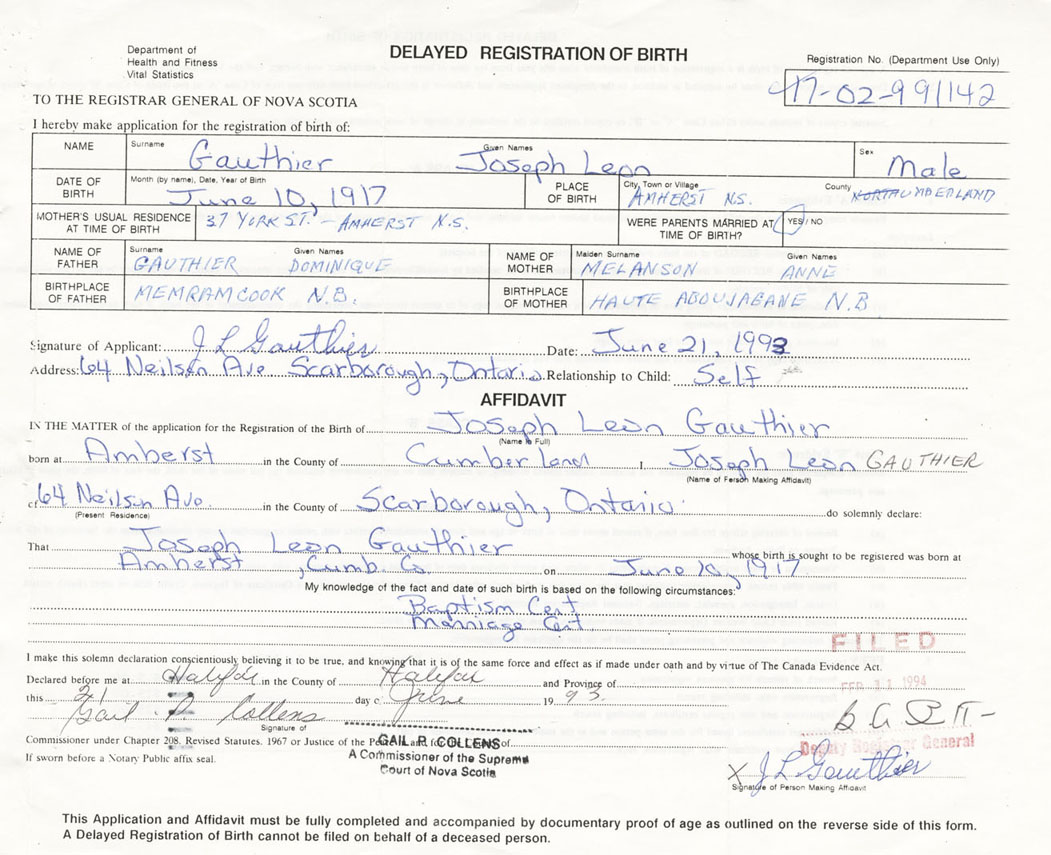 Department of
Health and Fitness
Vital Statistics
DELAYED REGISTRATION OF BIRTH
Registration No. (Department Use Only)
17-02-991142
TO THE REGISTRAR GENERAL OF NOVA SCOTIA
I hereby make application for the registration of birth of:
NAME Surname Gauthier Given Names Joseph Leon Sex Male
DATE OF BIRTH Month (by name), Date, Year of Birth June 10, 1917 PLACE OF BIRTH City, Town or Village AMHERST N.S. County UMBERLAND
MOTHER'S USUAL RESIDENCE AT TIME OF BIRTH 37 YORK ST. - AMHERST N.S. WERE PARENTS MARRIED AT TIME OF BIRTH? YES / NO
NAME OF FATHER Surname GAUTHIER Given Names DOMINIQUE NAME OF MOTHER Maiden Surname MELANSON Given Names ANNE
BIRTHPLACE OF FATHER MEMRAMCOOK N.B. BIRTHPLACE OF MOTHER HAUTE ABOUJAGANE N.B
Signature of Applicant: J L Gauthier Date: June 21, 1993
Address: 64 Neilson Ave Scarborough, Ontario Relationship to Child: Self
AFFIDAVIT
IN THE MATTER of the application for the Registration of the Birth of Joseph Leon Gauthier
(Name in Full)
born at Amherst in the County of Cumberland I, Joseph Leon GAUTHIER
(Name of Person Making Affidavit)
of 64 Neilson Ave in the County of Scarborough, Ontario do solemnly declare:
(Present Residence)
That Joseph Leon Gauthier whose birth is sought to be registered was born at
Amherst, Cumb. Co. on June 10, 1917
My knowledge of the fact and date of such birth is based on the following circumstances:
Baptism Cert
Marriage Cert
FILED
I make this solemn declaration conscientiously believing it to be true, and knowing that it is of the same force and effect as if made under oath and by virtue of The Canada Evidence Act.
Declared before me at Halifax in the County of Halifax and Province of
FEB 1994
this 21 day of June 1993.
Gail P. Collens
Signature of
Commissioner under Chapter 208. Revised Statutes. 1967 or Justice of the Peace and for of
If sworn before a Notary Public affix seal.
GAIL P. COLLENS
A Commissioner of the Supreme
Court of Nova Scotia
Deputy Registrar General
X J L Gauthier
Signature of Person Making Affidavit
This Application and Affidavit must be fully completed and accompanied by documentary proof of age as outlined on the reverse side of this form.
A Delayed Registration of Birth cannot be filed on behalf of a deceased person.